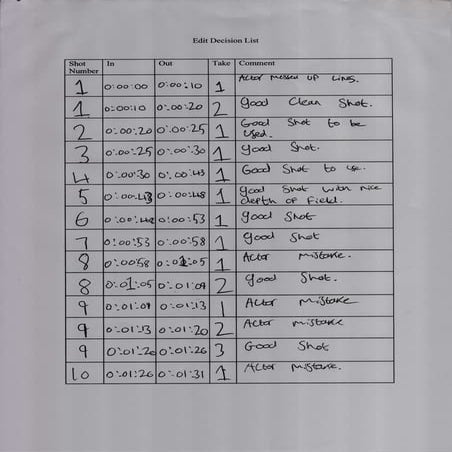 Edit Decision List
Shot Number In Out Take Comment
1 0:00:00 0:00:10 1 Actor messed up lines.
1 0:00:10 0:00:20 2 Good Clean Shot.
2 0:00:20 0:00:25 1 Good Shot to be used.
3 0:00:25 0:00:30 1 Good Shot.
4 0:00:30 0:00:43 1 Good Shot to use.
5 0:00:43 0:00:48 1 Good Shot with nice depth of field.
6 0:00:48 0:00:53 1 Good Shot
7 0:00:53 0:00:58 1 Good Shot
8 0:00:58 0:01:05 1 Actor mistake.
8 0:01:05 0:01:09 2 Good Shot.
9 0:01:09 0:01:13 1 Actor mistake
9 0:01:13 0:01:20 2 Actor mistake
9 0:01:20 0:01:26 3 Good Shot
10 0:01:26 0:01:31 1 Actor mistake.